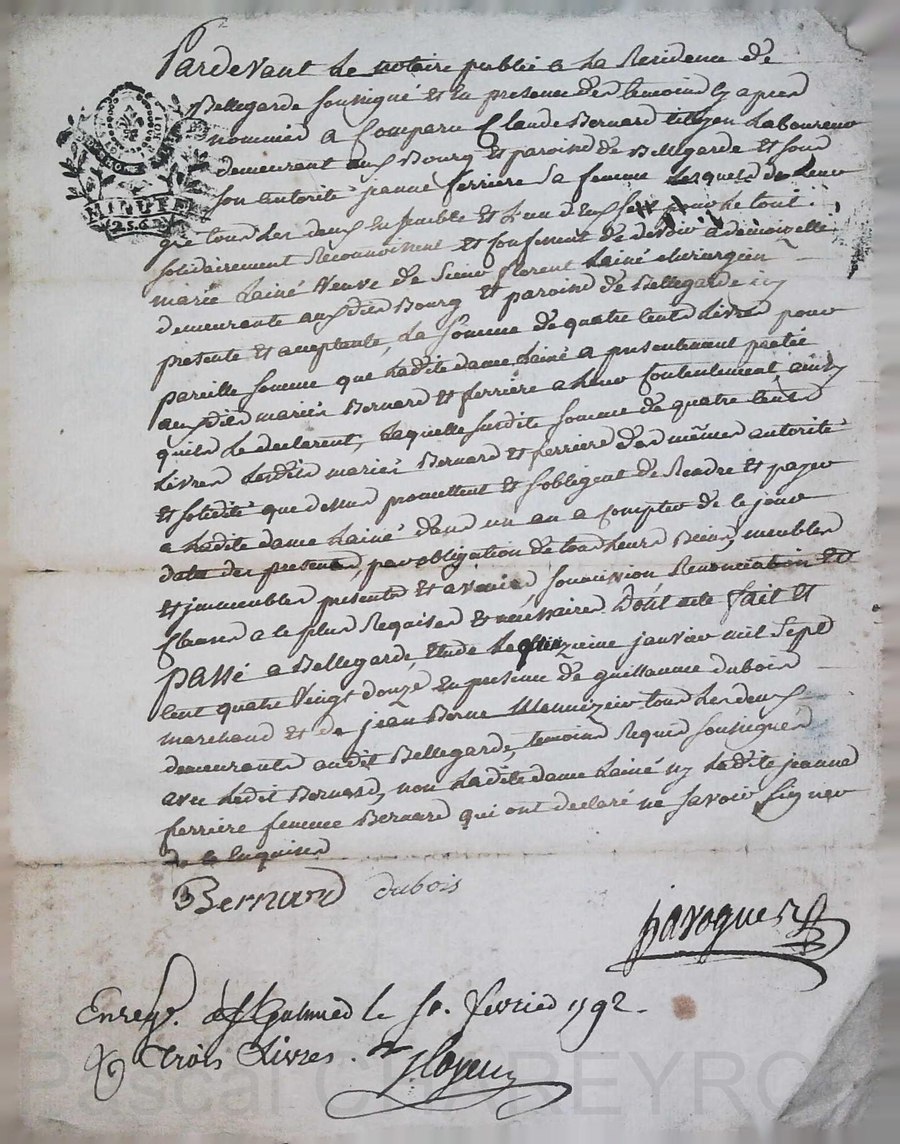 Pardevant Le notoire publié a La Residence de
Bellegarde soussigné et En presence des temoins Cy apres
nommés a Comparu Claude Bernard citoyen Laboureur
demeurant aux Bourg et paroisse de Bellegarde et sous
son autorité jeanne ferriere sa femme Lesquels de Leur
gré tous Les deux Ensemble et L'un d'Eux seul pour Le tout
solidairement Reconnoissent et Confessent de devoir a demoiselle
marie Lainé Veuve de Sieur florent Lainé chirurgien
demeurante aux dits Bourg et paroisse de Bellegarde icy
presente et acceptante, La somme de quatre Cents Livres pour
pareille somme que Ladite dame Lainé a presentement pretée
auxdits mariés Bernard et ferriere a Leur Contentement, ainsy
qu'ils Le declarent, Laquelle susdite somme de quatre Cents
Livres Lesdits mariés Bernard et ferriere des mêmes autorité
et solidité que dessus promettent et s'obligent de Rendre et payer
a Ladite dame Lainé dans un an a compter de ce jour
date des presentes, par obligation de tous Leurs Biens, meubles
et immeubles presents et avenir, soumission Renonciation et
Clauses a ce plus Requises et nécessaires Dont acte fait et
passé a Bellegarde, Etude Le quinzieme janvier mil sept
Cent quatre Vingt douze En presence de guillaume dubois
marchand et de jean Berne Menuizier tous Les deux
demeurants audit Bellegarde, temoins Requis soussignés
avec Ledit Bernard, non Ladite dame Lainé ny Ladite jeanne
ferriere femme Bernard qui ont declaré ne savoir signer
de ce Enquises
Bernard dubois
javogues
Enreg. à St Galmier le 1r. fevrier 1792.
trois Livres.
MINUTE
LA LOI